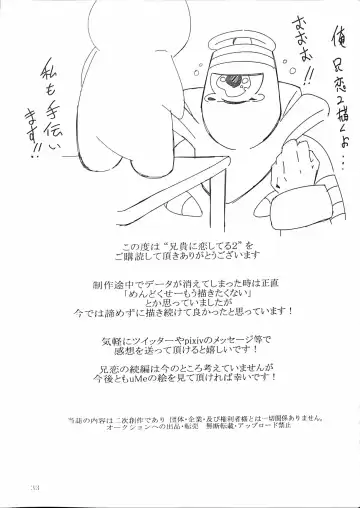 俺兄恋2描くよ…
むむむ!!
私も手伝い
ます!!
この度は“兄貴に恋してる2”を
ご購読して頂きありがとうございます
制作途中でデータが消えてしまった時は正直
「めんどくせーもう描きたくない」
とか思っていましたが
今では諦めずに描き続けて良かったと思っています！
気軽にツイッターやpixivのメッセージ等で
感想を送って頂けると嬉しいです！
兄恋の続編は今のところ考えていませんが
今後ともuMeの絵を見て頂ければ幸いです！
当誌の内容は二次創作であり 団体・企業・及び権利者様とは一切関係ありません。
オークションへの出品・転売 無断転載・アップロード禁止
33